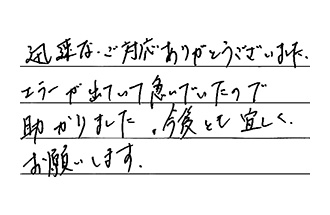 迅速な.ご対応ありがとうございました.
エラーが出ていて急いでいたので
助かりました.今後とも宜しく.
お願いします.